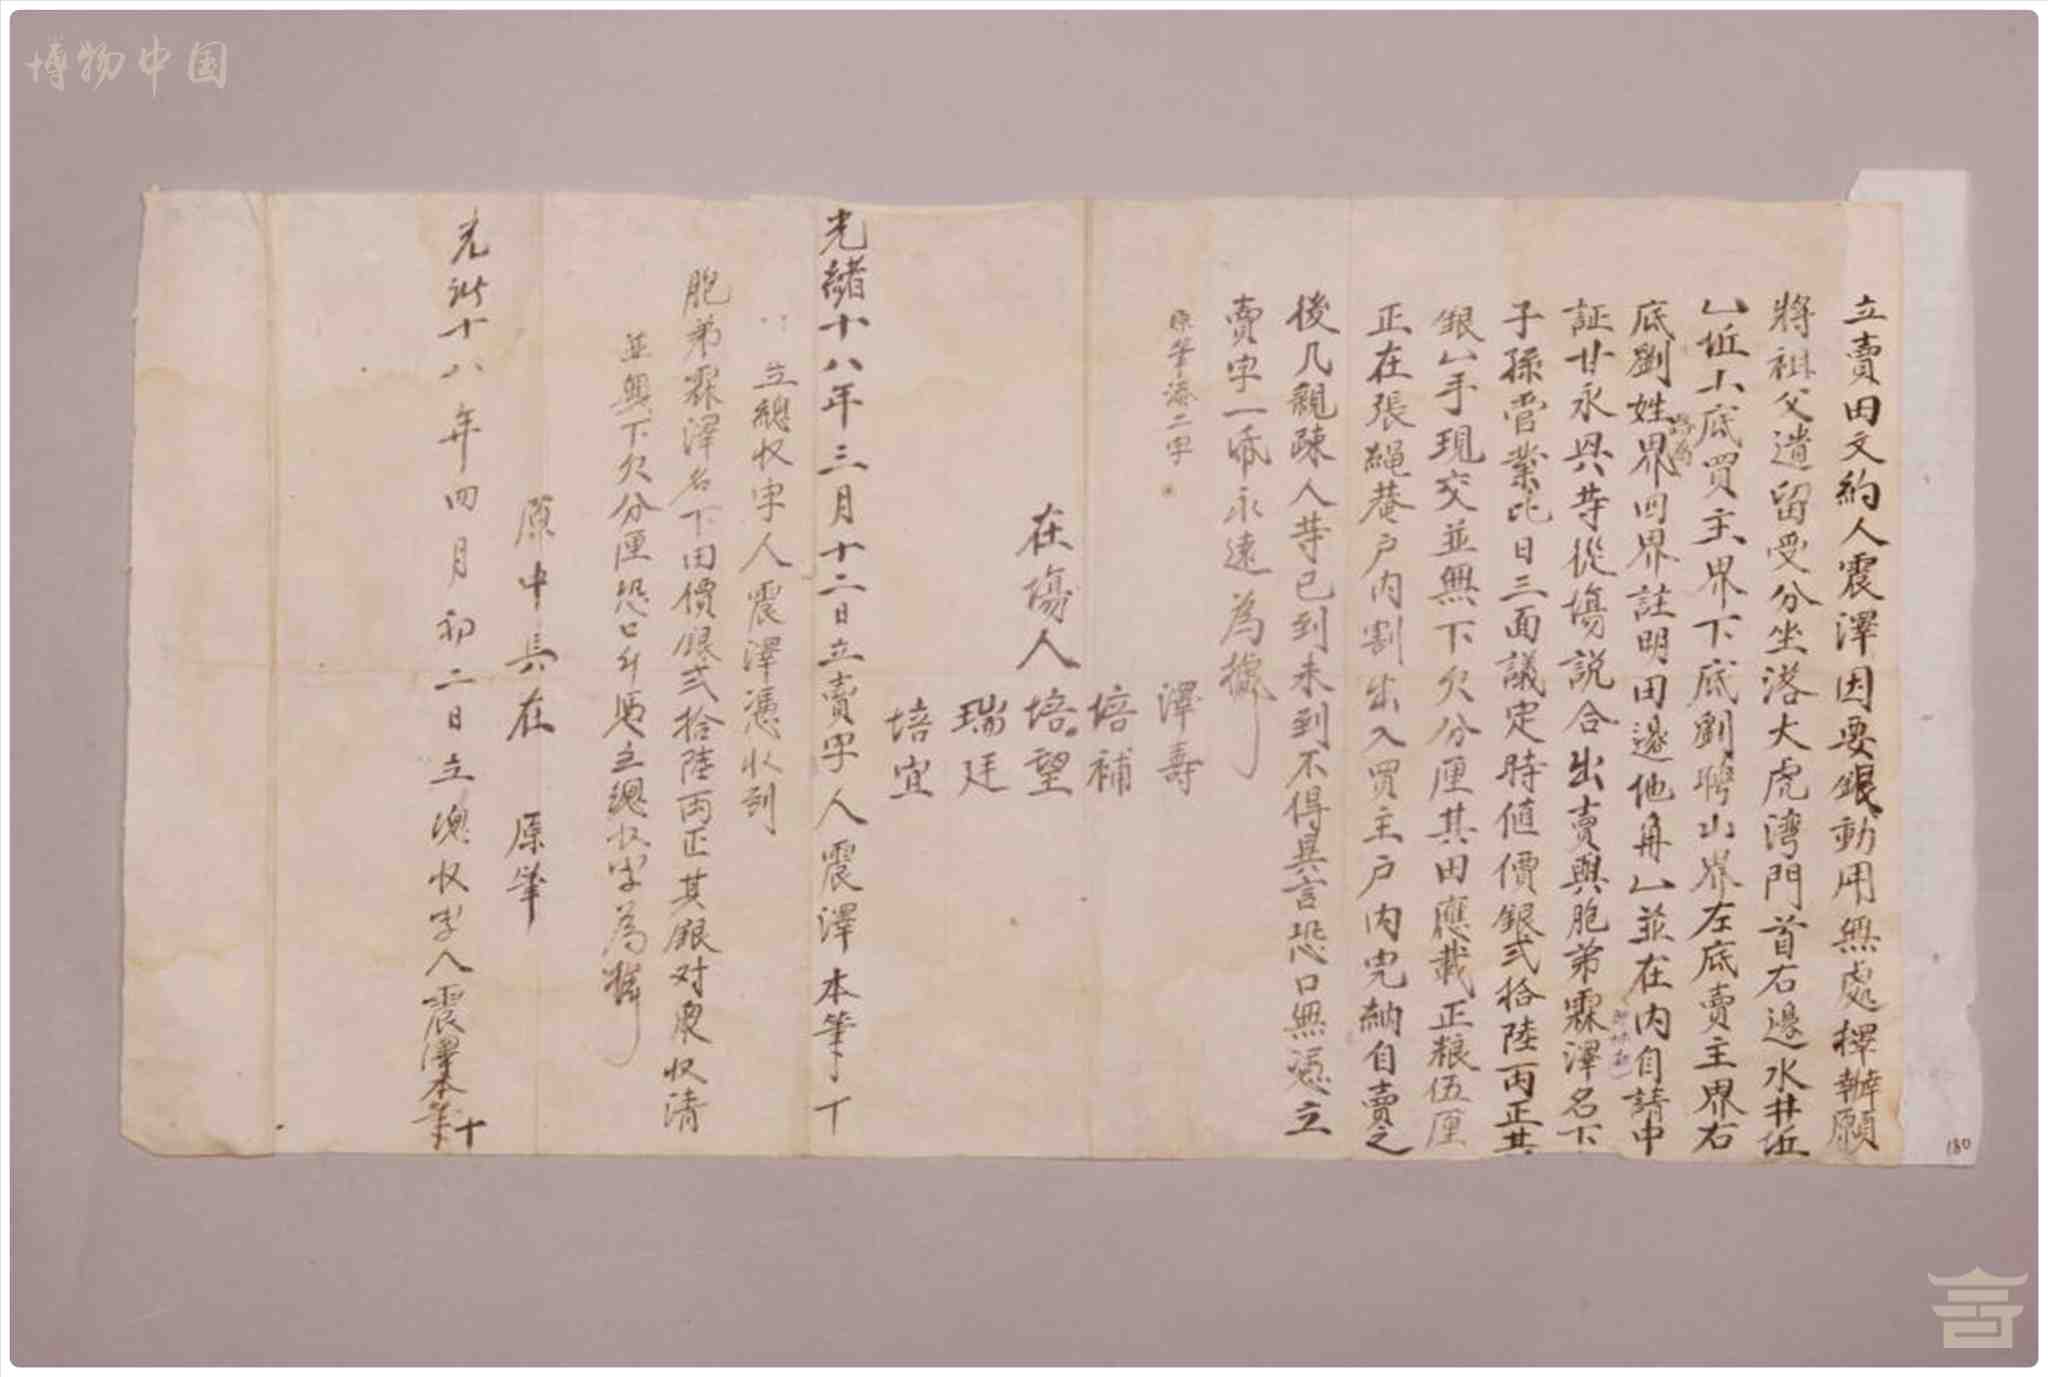 博物中国
立賣田文約人震澤因要銀動用無處擇辦願
將祖父遺留受分坐落大虎湾門首右邊水井坵
乚坵上底買主界下底劉聘山界左底賣主界右
底劉姓界四界註明田邊他冉乚並在內自請中
証甘永興等從塲説合出賣與胞弟霖澤名下
子孫管業比日三面議定時值價銀弍拾陸両正其
銀乚手現交並無下欠分厘其田應載正粮伍厘
正在張繩菴户内割出入買主户内完納自賣之
後凡親疎人等已到未到不得異言恐口無憑立
賣字一紙永遠為據
原筆添二字
澤壽
培補
在塲人 培望
瑞廷
培宜
光緒十八年三月十二日立賣字人震澤本筆
立總收字人震澤憑收到
胞弟霖澤名下田價銀弍拾陸両正其銀对衆收清
並無下欠分厘恐口無憑立總收字為據
原中長在 原筆
光緒十八年四月初二日立總收字人震澤本筆十
180